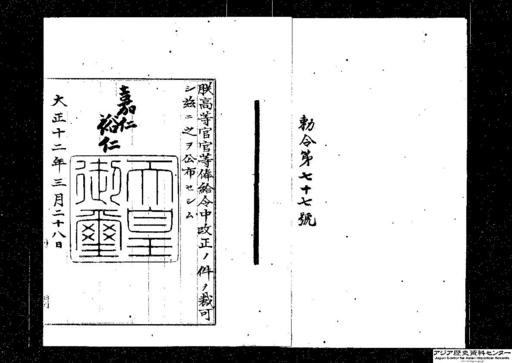 勅令第七十七號
朕高等官官等俸給令中改正ノ件ノ裁可
シ茲ニ之ヲ公布セシム
嘉仁
裕仁
天皇
御璽
大正十二年三月二十八日
アジア歴史資料センター
Japan Center for Asian Historical Records